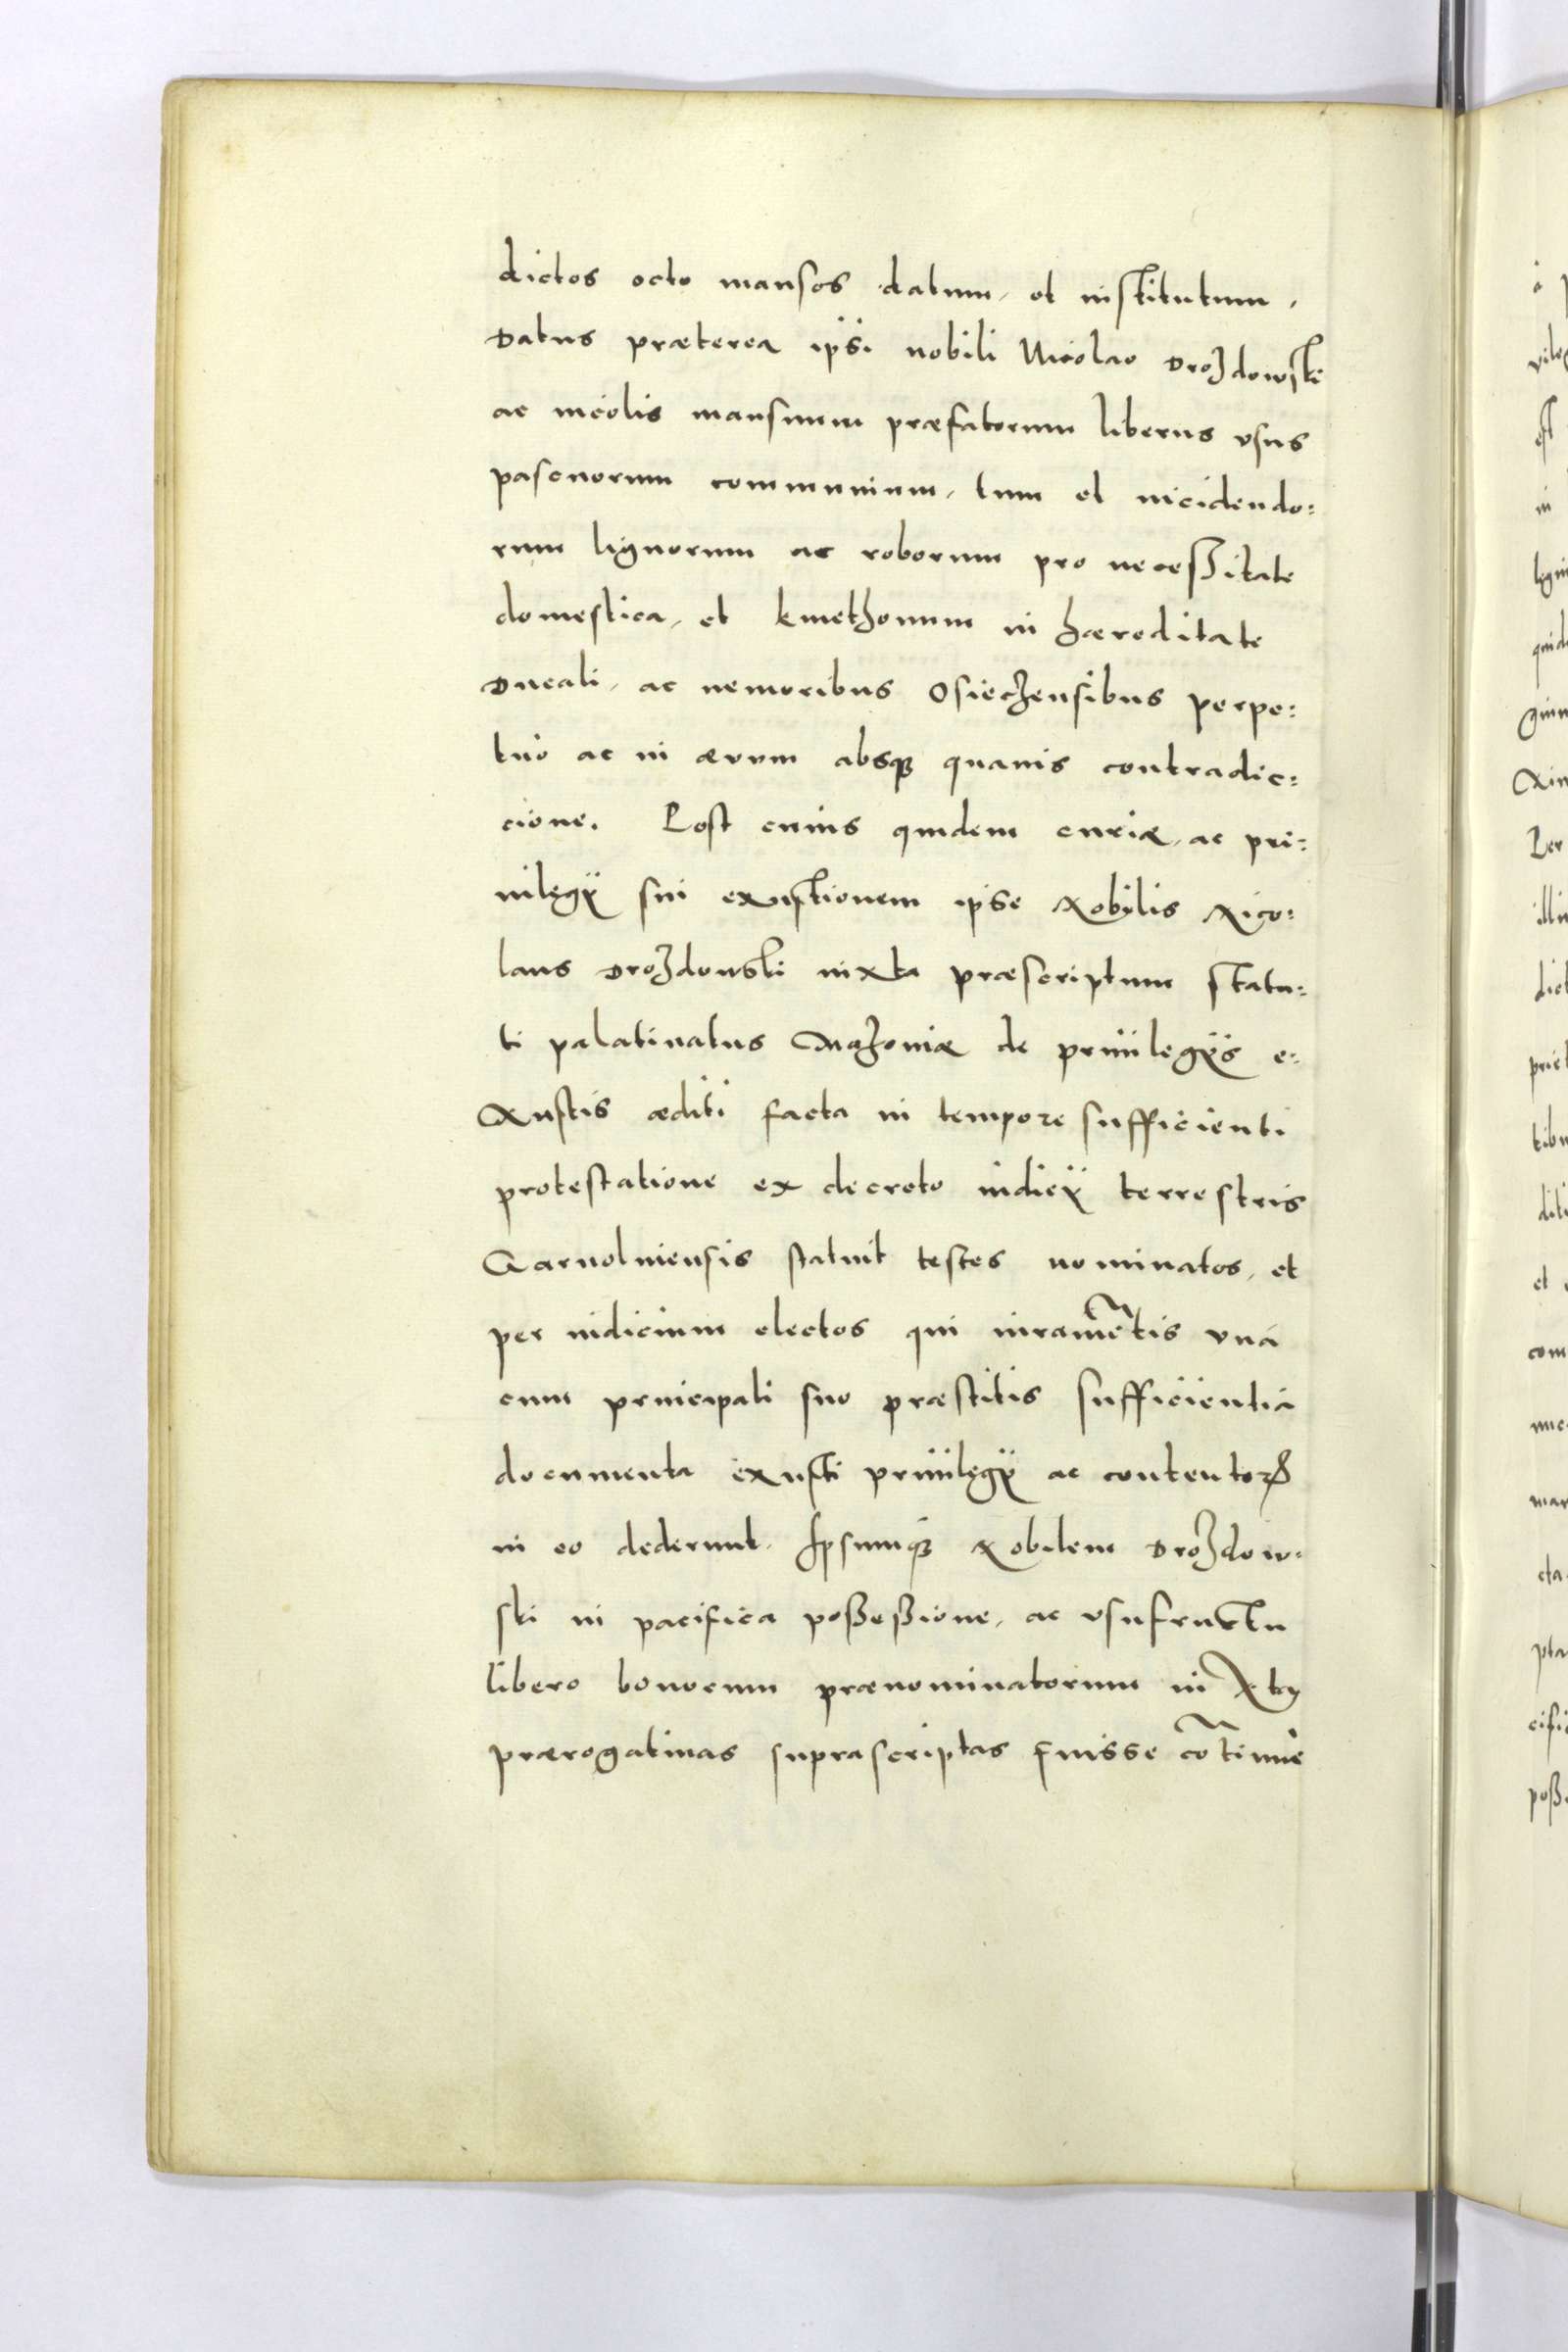 dictos octo mansos datum, et institutum,
Datus præterea ipsi nobili Nicolao Drozdowski
ac incolis mansuum præfatorum liberus vsus
pascuorum communium, tum et incidendo:
rum lignorum ac roborum pro necessitate
domestica, et kmethonum in hæreditate
Ducali, ac nemoribus Osieczensibus perpe:
tuo ac in ævum absq3 quauis contradic:
cione. Post cuius quidem curiæ, ac pri:
uilegÿ sui exustionem ipse Nobylis Nico:
laus Drozdouski iuxta præscriptum statu:
ti palatinatus Mazoniæ de priuilegÿs e:
xustis æditi facta in tempore sufficienti
protestatione ex decreto iudicÿ terrestris
Garuolniensis statuit testes nominatos, et
per iudicium electos qui iuramẽtis vná
cum principali suo præstitis sufficientia
documenta exusti priuilegÿ ac contentorꝝ
in eo dederunt. Ipsumq3 Nobilem Drozdow:
ski in pacifica possessione, ac vsufructu
libero bonorum prænominatorum iuxta
prærogatiuas suprascriptas fuisse cõtinuè